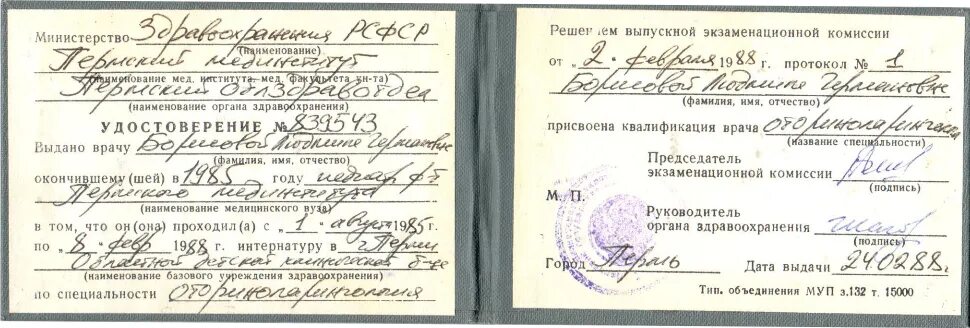 Министерство Здравоохранения РСФСР
(наименование)
Пермский мединститут
(наименование мед. института, мед. факультета ун-та)
Пермский Облздравотдел
(наименование органа здравоохранения)
УДОСТОВЕРЕНИЕ № 839543
Выдано врачу Борисовой Людмиле Германовне
(фамилия, имя, отчество)
окончившему (шей) в 1985 году педиатр. ф-т
Пермского мединститута
(наименование медицинского вуза)
в том, что он (она) проходил(а) с „1 " августа 1985 г.
по „8 " февр 1988 г. интернатуру в г. Перми
Областной детской клинической б-це
(наименование базового учреждения здравоохранения)
по специальности Оториноларингология
Решением выпускной экзаменационной комиссии
от „2 " февраля 1988 г. протокол № 1
Борисовой Людмиле Германовне
(фамилия, имя, отчество)
присвоена квалификация врача оториноларинголога
(название специальности)
Председатель
экзаменационной комиссии
(подпись)
М. П.
Руководитель
органа здравоохранения
(подпись)
Город Пермь Дата выдачи 24.02.88.
Тип. объединения МУП з.132 т. 15000